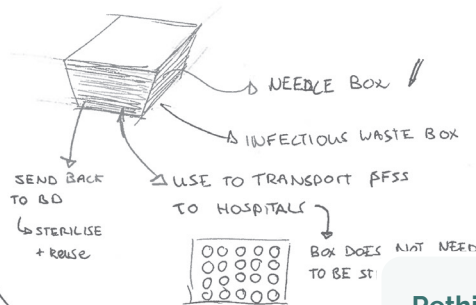 NEEDLE BOX
INFECTIOUS WASTE BOX
SEND BACK
TO BD
STERILISE
+ REUSE
USE TO TRANSPORT PFSS
TO HOSPITALS
BOX DOES NOT NEED
TO BE